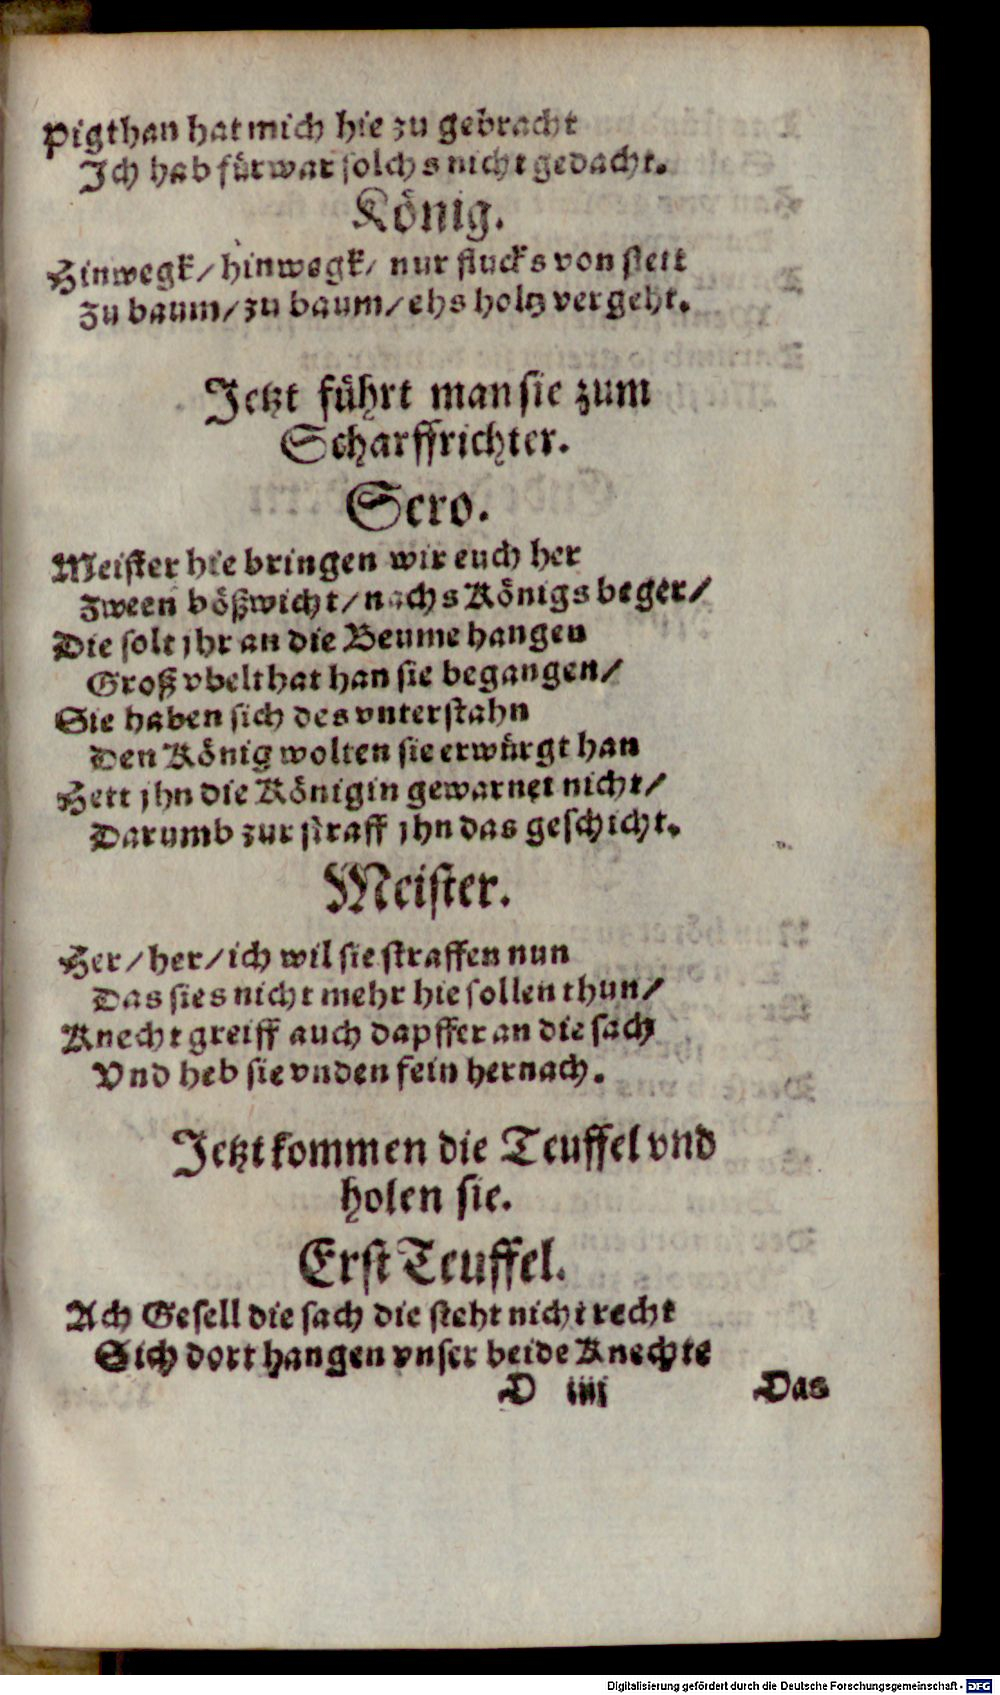 Pigthan hat mich hie zu gebracht
Ich hab fürwar solchs nicht gedacht.
König.
Hinwegk / hinwegk / nur flucks von stett
Zu baum / zu baum / ehs holtz vergeht.
Jetzt führt man sie zum
Scharffrichter.
Sero.
Meister hie bringen wir euch her
Zween bößwicht / nachs Königs beger /
Die solt jhr an die Beume hangen
Groß vbelthat han sie begangen /
Sie haben sich des vnterstahn
Den König wolten sie erwürgt han
Hett jhn die Königin gewarnet nicht /
Darumb zur straff jhn das geschicht.
Meister.
Her / her / ich wil sie straffen nun
Das sies nicht mehr hie sollen thun /
Knecht greiff auch dapffer an die sach
Vnd heb sie vnden fein hernach.
Jetzt kommen die Teuffel vnd
holen sie.
Erst Teuffel.
Ach Gesell die sach die steht nicht recht
Sich dort hangen vnser beide Knechte
D iiij Das
Digitalisierung gefördert durch die Deutsche Forschungsgemeinschaft - DFG